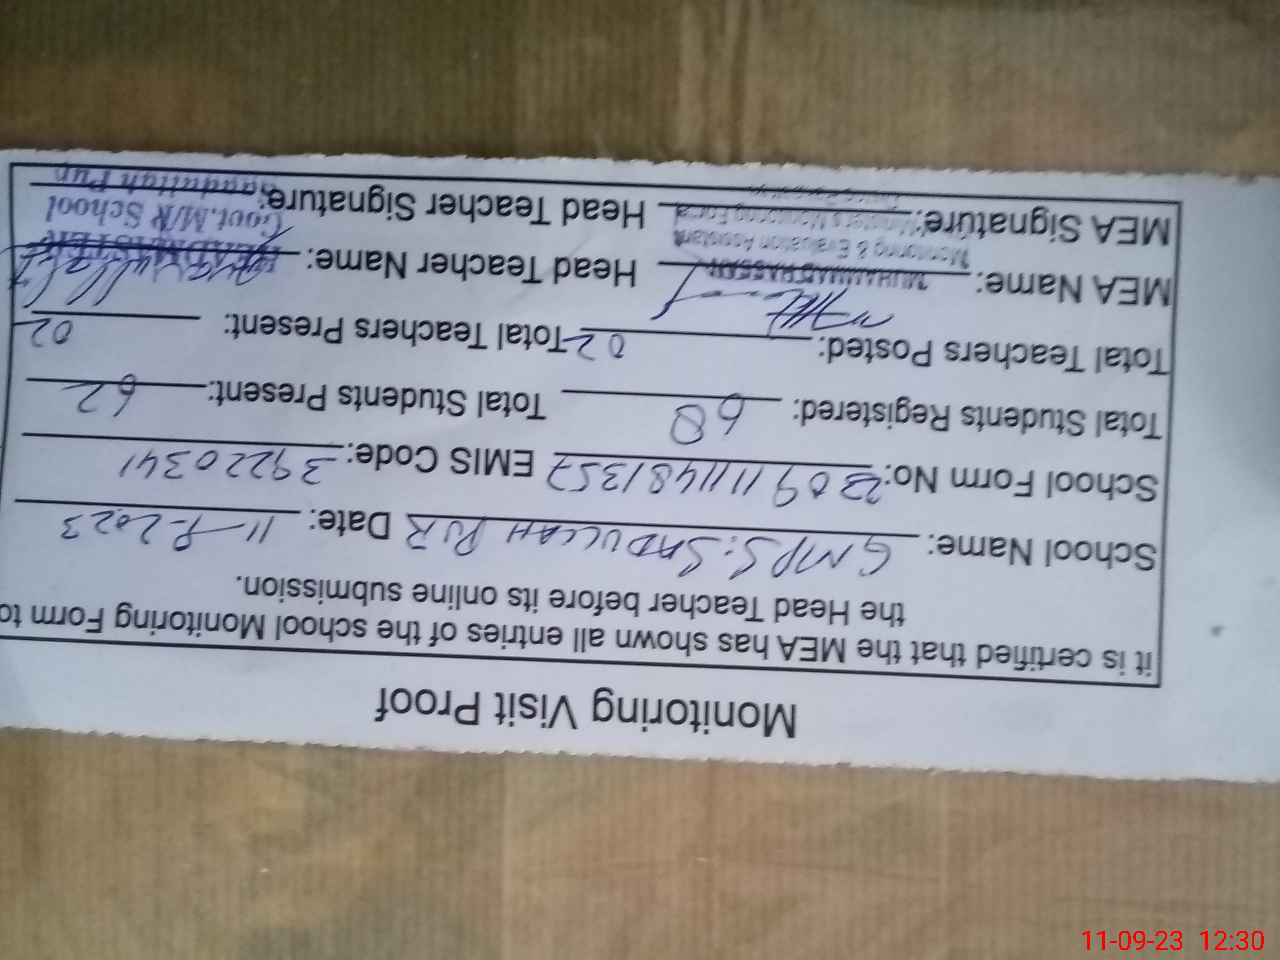 Monitoring Visit Proof
it is certified that the MEA has shown all entries of the school Monitoring Form to
the Head Teacher before its online submission.
School Name: GMPS: SADULLAH PUR Date: 11-9-2023
School Form No: 2309111481352 EMIS Code: 39220341
Total Students Registered: 68 Total Students Present: 62
Total Teachers Posted: 02 Total Teachers Present: 02
MEA Name: MUHAMMAD HASSAN Head Teacher Name: HEADMASTER
Monitoring & Evaluation Assistant Govt.M/P School
MEA Signature: Minister's Monitoring Force Head Teacher Signature: Saadullah Pur
11-09-23 12:30